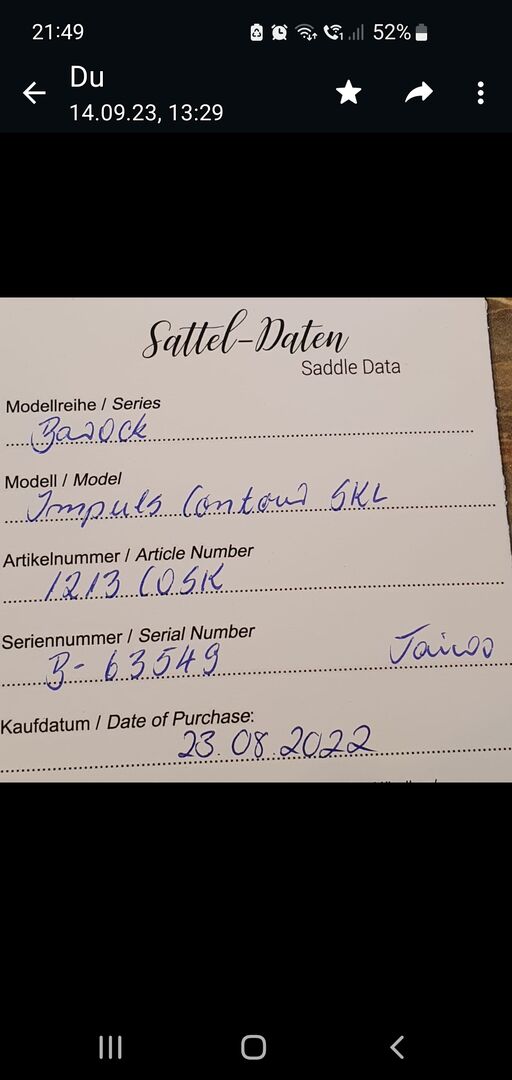 21:49
52%
Du
14.09.23, 13:29
Sattel-Daten
Saddle Data
Modellreihe / Series
Barock
Modell / Model
Impuls Contour SKL
Artikelnummer / Article Number
1213 COSK
Seriennummer / Serial Number
B-63549
Kaufdatum / Date of Purchase:
23.08.2022